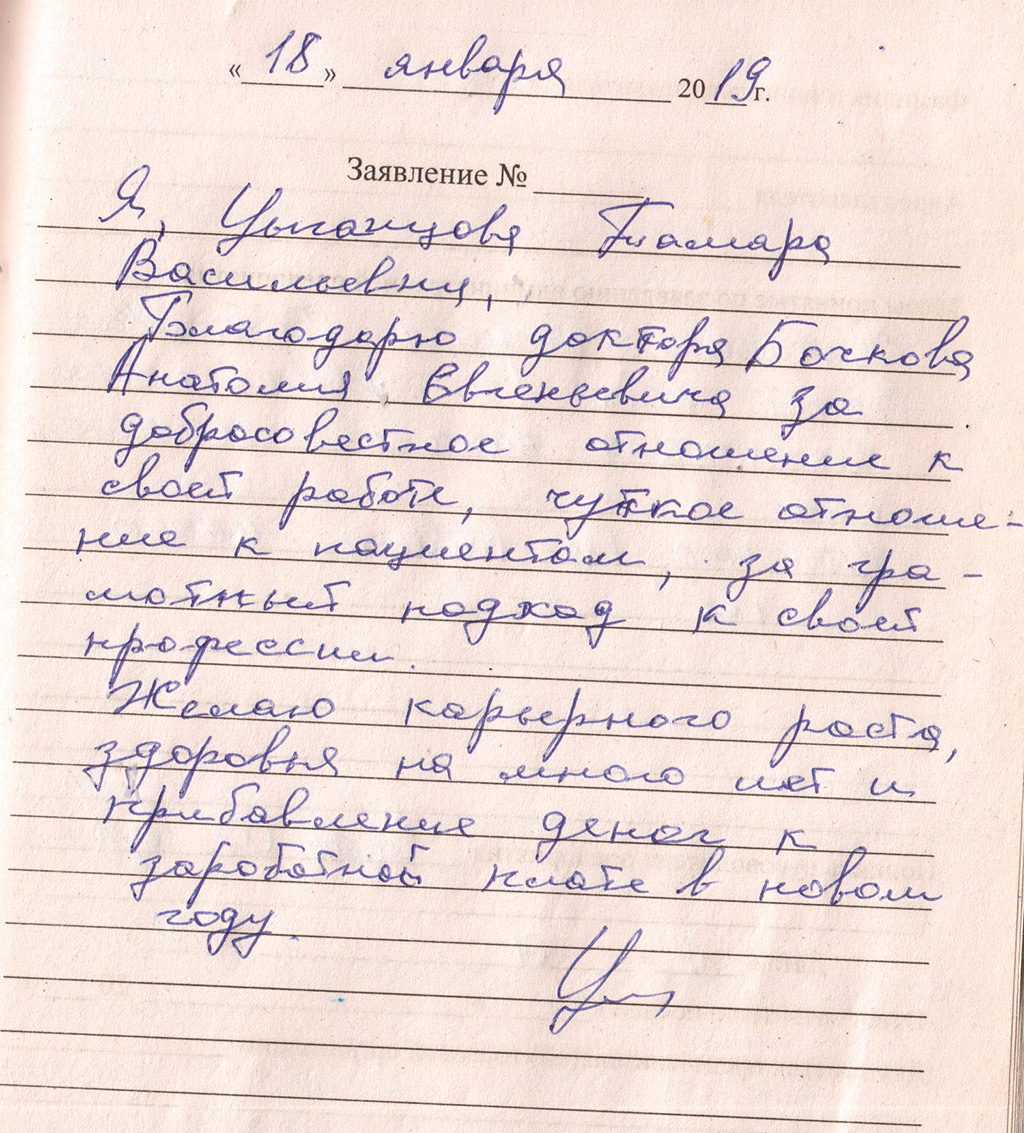 «18» января 2019г.
Заявление №
Я, Цыганцова Тамара
Васильевна,
Благодарю доктора Бочкова
Анатолия Евгеньевича за
добросовестное отношение к
своей работе, чуткое отноше-
ние к пациентам, за гра-
мотный подход к своей
профессии.
Желаю карьерного роста,
здоровья на много лет и
прибавление денег к
заработной плате в новом
году.